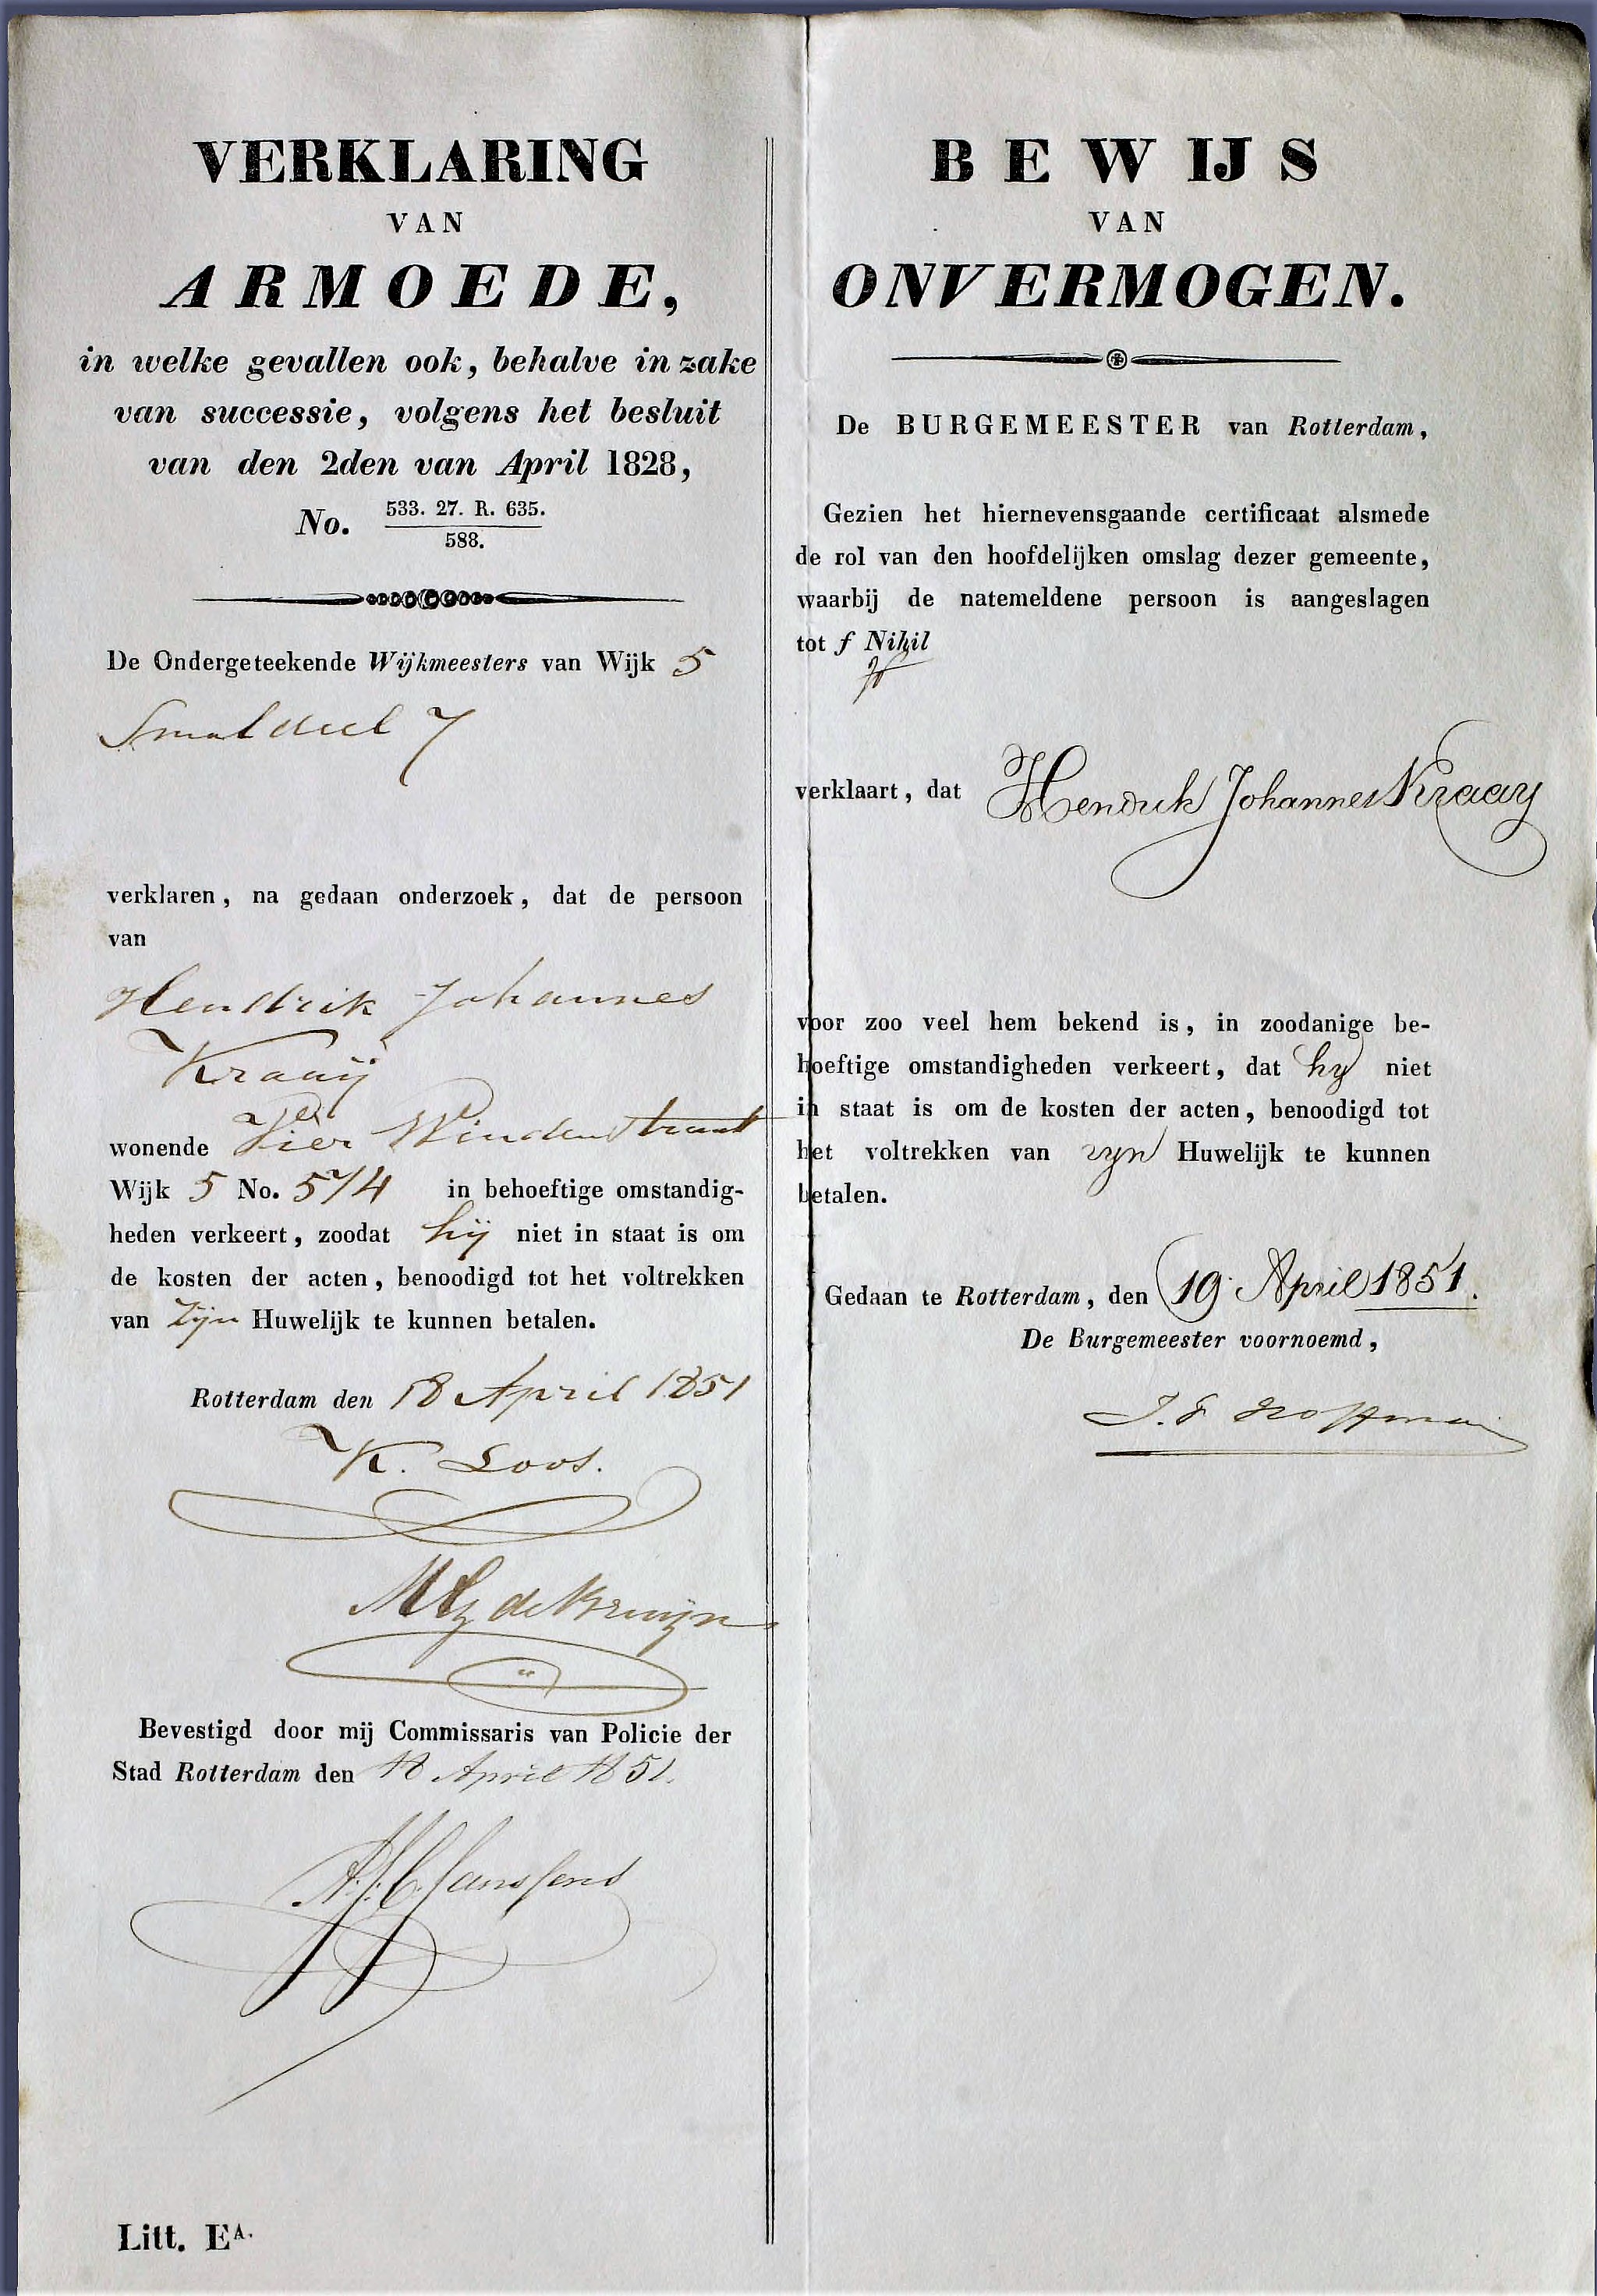 VERKLARING
VAN
ARMOEDE,
in welke gevallen ook, behalve in zake
van successie, volgens het besluit
van den 2den van April 1828,
No. 533. 27. R. 635.
588.
De Ondergeteekende Wijkmeesters van Wijk 5
Smaldeel 7
verklaren, na gedaan onderzoek, dat de persoon
van
Hendrik Johannes
Kraaij
wonende Vier Windenstraat
Wijk 5 No. 574 in behoeftige omstandig-
heden verkeert, zoodat hij niet in staat is om
de kosten der acten, benoodigd tot het voltrekken
van zijn Huwelijk te kunnen betalen.
Rotterdam den 18 April 1851
K. Loos.
de Kruijn
Bevestigd door mij Commissaris van Policie der
Stad Rotterdam den 18 April 1851.
Janssens
Litt. EA.
BEWIJS
VAN
ONVERMOGEN.
De BURGEMEESTER van Rotterdam,
Gezien het hiernevensgaande certificaat alsmede
de rol van den hoofdelijken omslag dezer gemeente,
waarbij de natemeldene persoon is aangeslagen
tot f Nihil
verklaart, dat Hendrik Johannes Kraay
voor zoo veel hem bekend is, in zoodanige be-
hoeftige omstandigheden verkeert, dat hy niet
in staat is om de kosten der acten, benoodigd tot
het voltrekken van zyn Huwelijk te kunnen
betalen.
Gedaan te Rotterdam, den 19 April 1851.
De Burgemeester voornoemd,
J. F. Hoffman